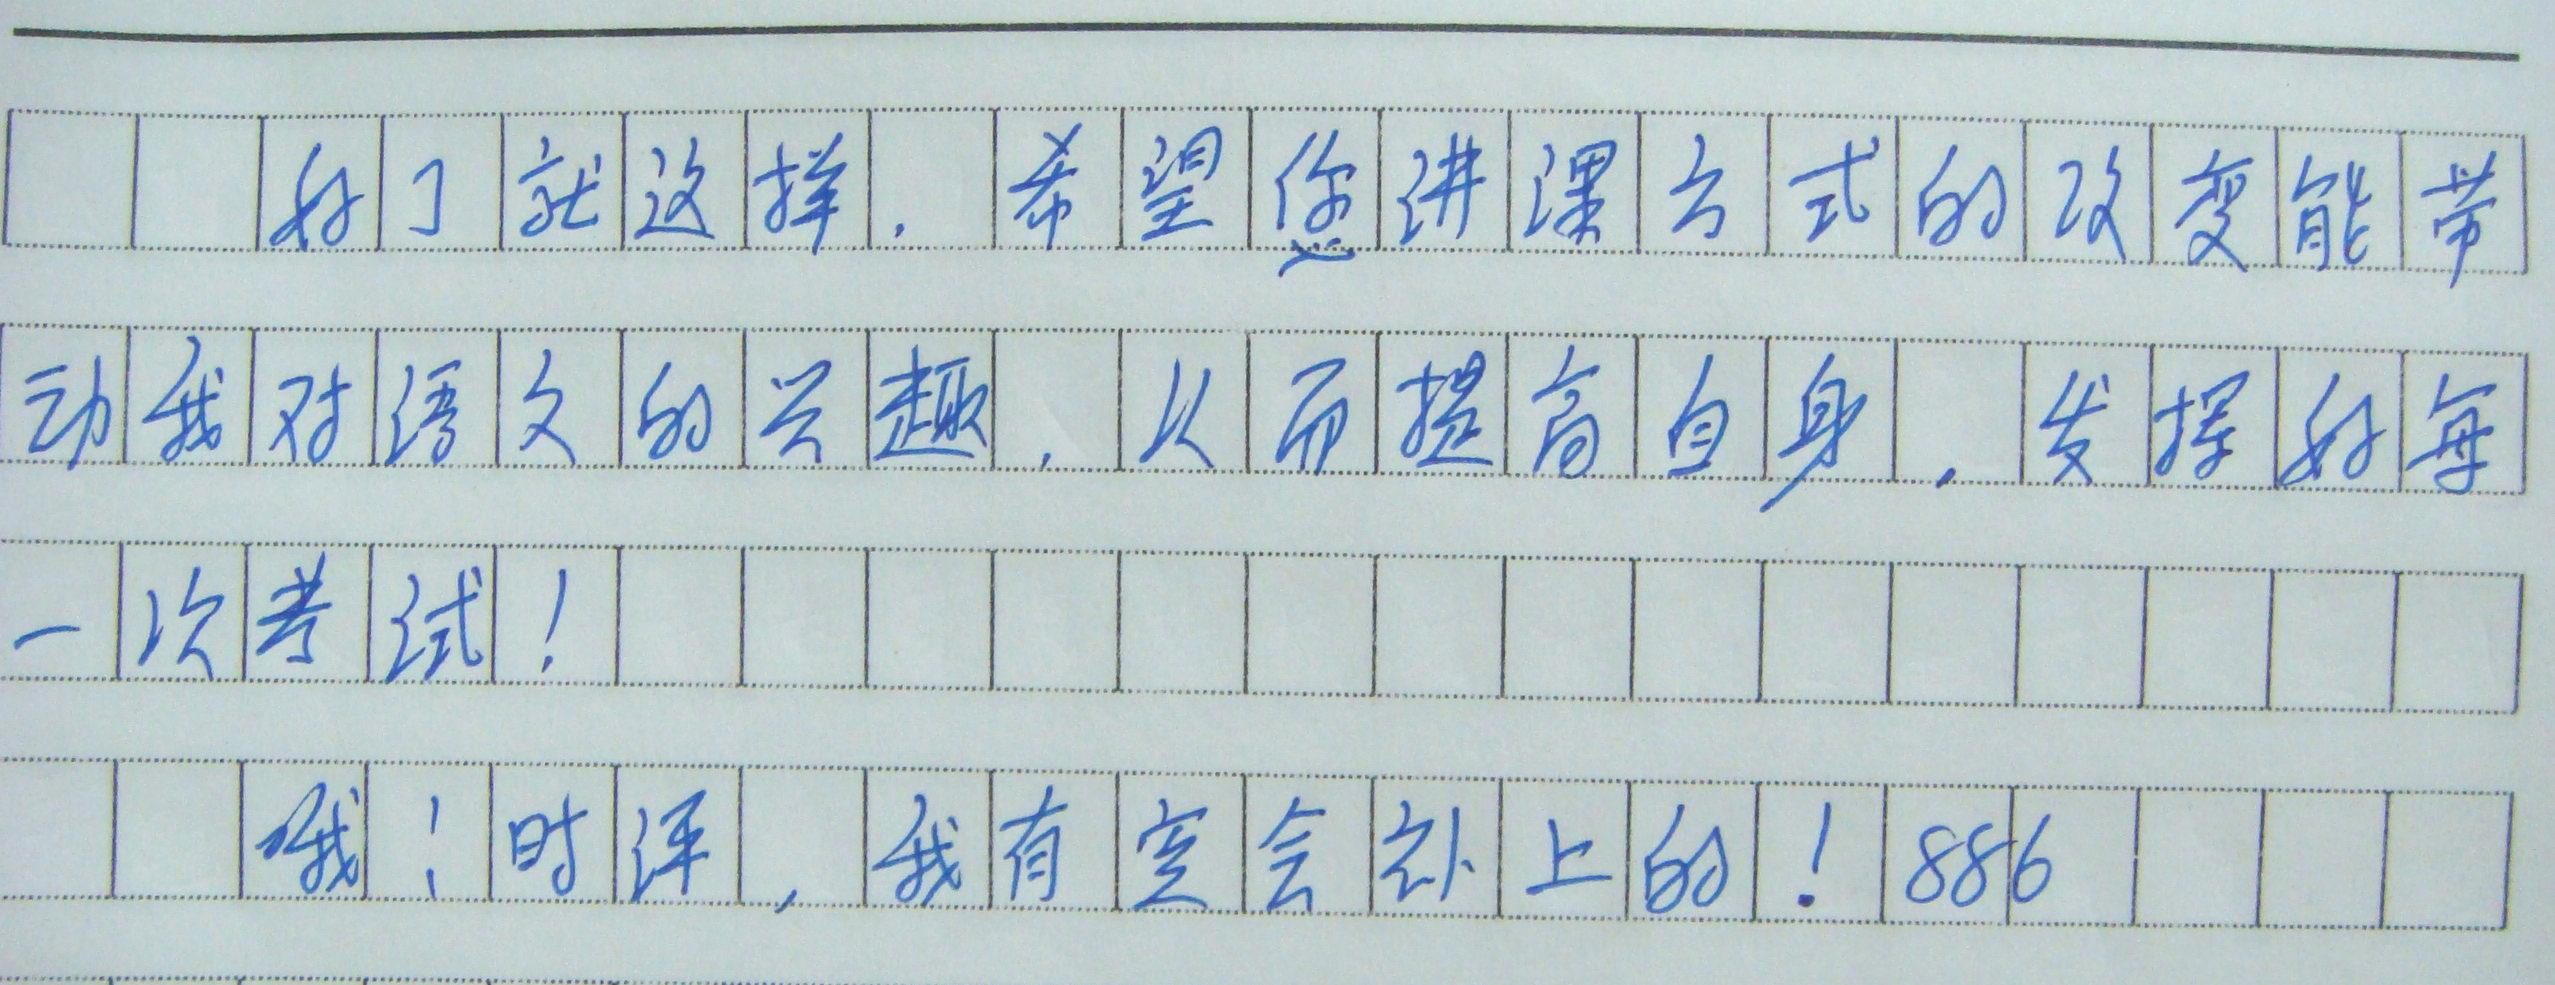 好了就这样.希望您讲课方式的改变能带
动我对语文的兴趣.从而提高自身,发挥好每
一次考试!
哦!时评,我有空会补上的!886